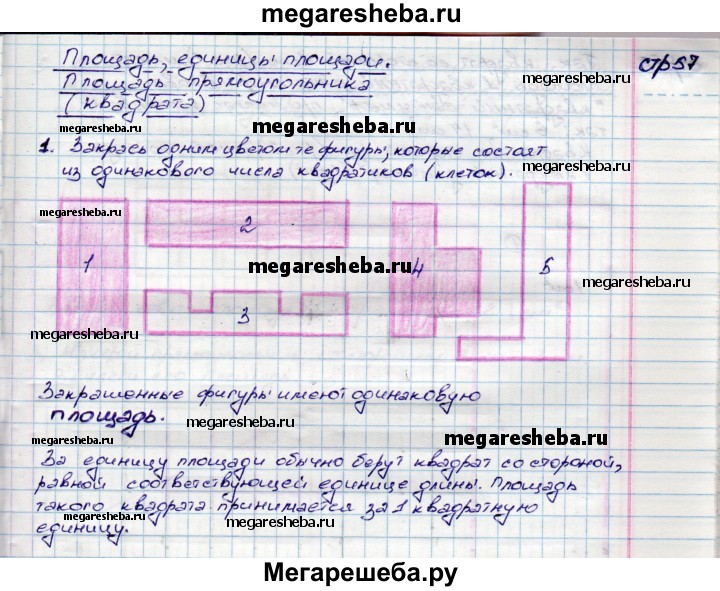 megaresheba.ru
Площадь, единицы площади.
стр57
Площадь прямоугольника
(квадрата)
megaresheba.ru
megaresheba.ru
1. Закрась одним цветом те фигуры, которые состоят
из одинакового числа квадратиков (клеток).
megaresheba.ru
megaresheba.ru
1
2
3
4
5
megaresheba.ru
megaresheba.ru
megaresheba.ru
megaresheba.ru
Закрашенные фигуры имеют одинаковую
megaresheba.ru
площадь.
megaresheba.ru
megaresheba.ru
За единицу площади обычно берут квадрат со стороной,
равной соответствующей единице длины. Площадь
такого квадрата принимается за 1 квадратную
megaresheba.ru
megaresheba.ru
единицу.
Мегарешеба.ру